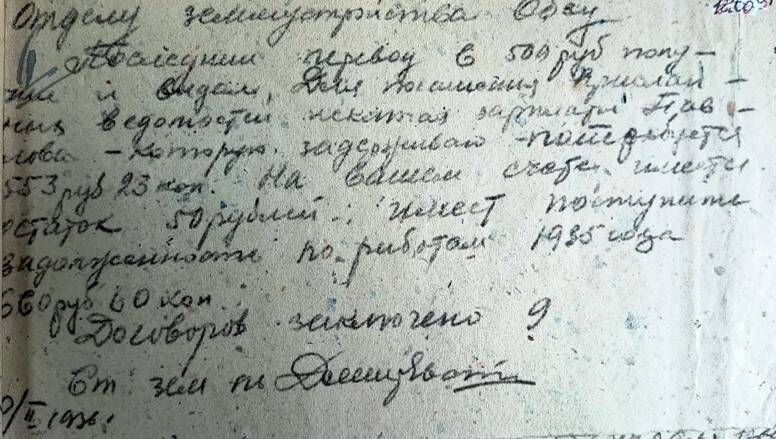 Отделу землеустройства
Последний перевод в 500 руб полу-
и выдал, Для погашения прилагае-
ведомостей исключая зарплаты Пав-
лова - которую задерживаю - потребуется
553 руб 23 коп. На вашем счету имеется
остаток 50 рублей. имеет поступить
задолженность по работам 1935 года
660 руб 60 коп.
Договоров заключено 9
Ст. зем
II 1936.